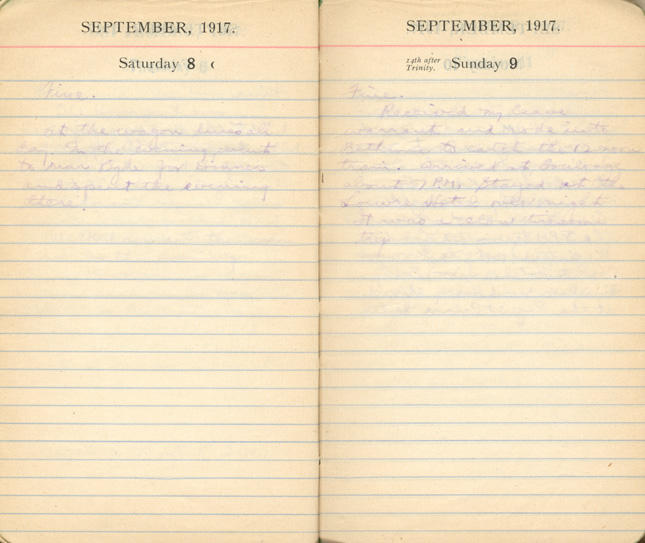 SEPTEMBER, 1917.
Saturday 8
Fine.
at the wagon lines all
day. In the evening went
to near for
and spent the evening
there.
SEPTEMBER, 1917.
14th after
Trinity.
Sunday 9
Fine.
Received my leave
warrant and rode into
Bethune to catch the 12 noon
train. Arrived at Boulogne
about 7 P.M. Stayed at the
Louvre Hotel over night
It was a slow tiresome
trip